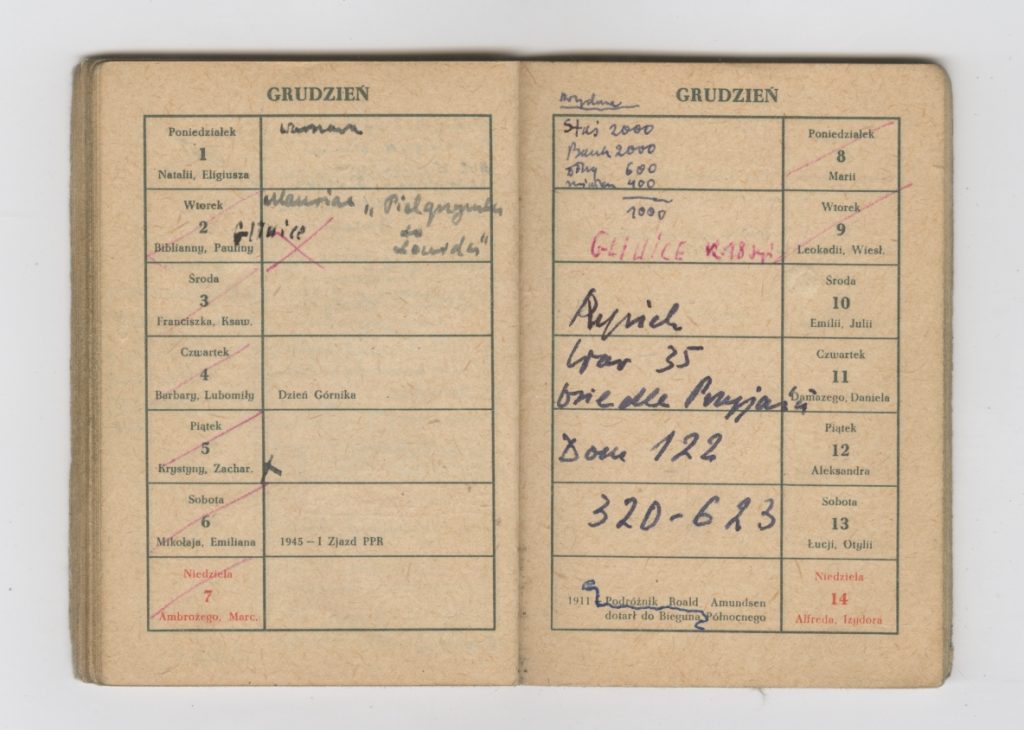 GRUDZIEŃ
Poniedziałek
1
Natalii, Eligiusza
Warszawa
Wtorek
2
Biblianny, Pauliny
Mauriac „Pielgrzymka
do
Lourdes"
GLIWICE
Środa
3
Franciszka, Ksaw.
Czwartek
4
Barbary, Lubomiły
Dzień Górnika
Piątek
5
Krystyny, Zachar.
Sobota
6
Mikołaja, Emiliana
1945 – I Zjazd PPR
Niedziela
7
Ambrożego, Marc.
GRUDZIEŃ
Staś 2000
Bank 2000
600
400
1000
Poniedziałek
8
Marii
GLIWICE
Wtorek
9
Leokadii, Wiesł.
Środa
10
Emilii, Julii
War 35
Osiedle Przyjaźń
Czwartek
11
Damazego, Daniela
Dom 122
Piątek
12
Aleksandra
320-623
Sobota
13
Łucji, Otylii
1911 – Podróżnik Roald Amundsen
dotarł do Bieguna Północnego
Niedziela
14
Alfreda, Izydora